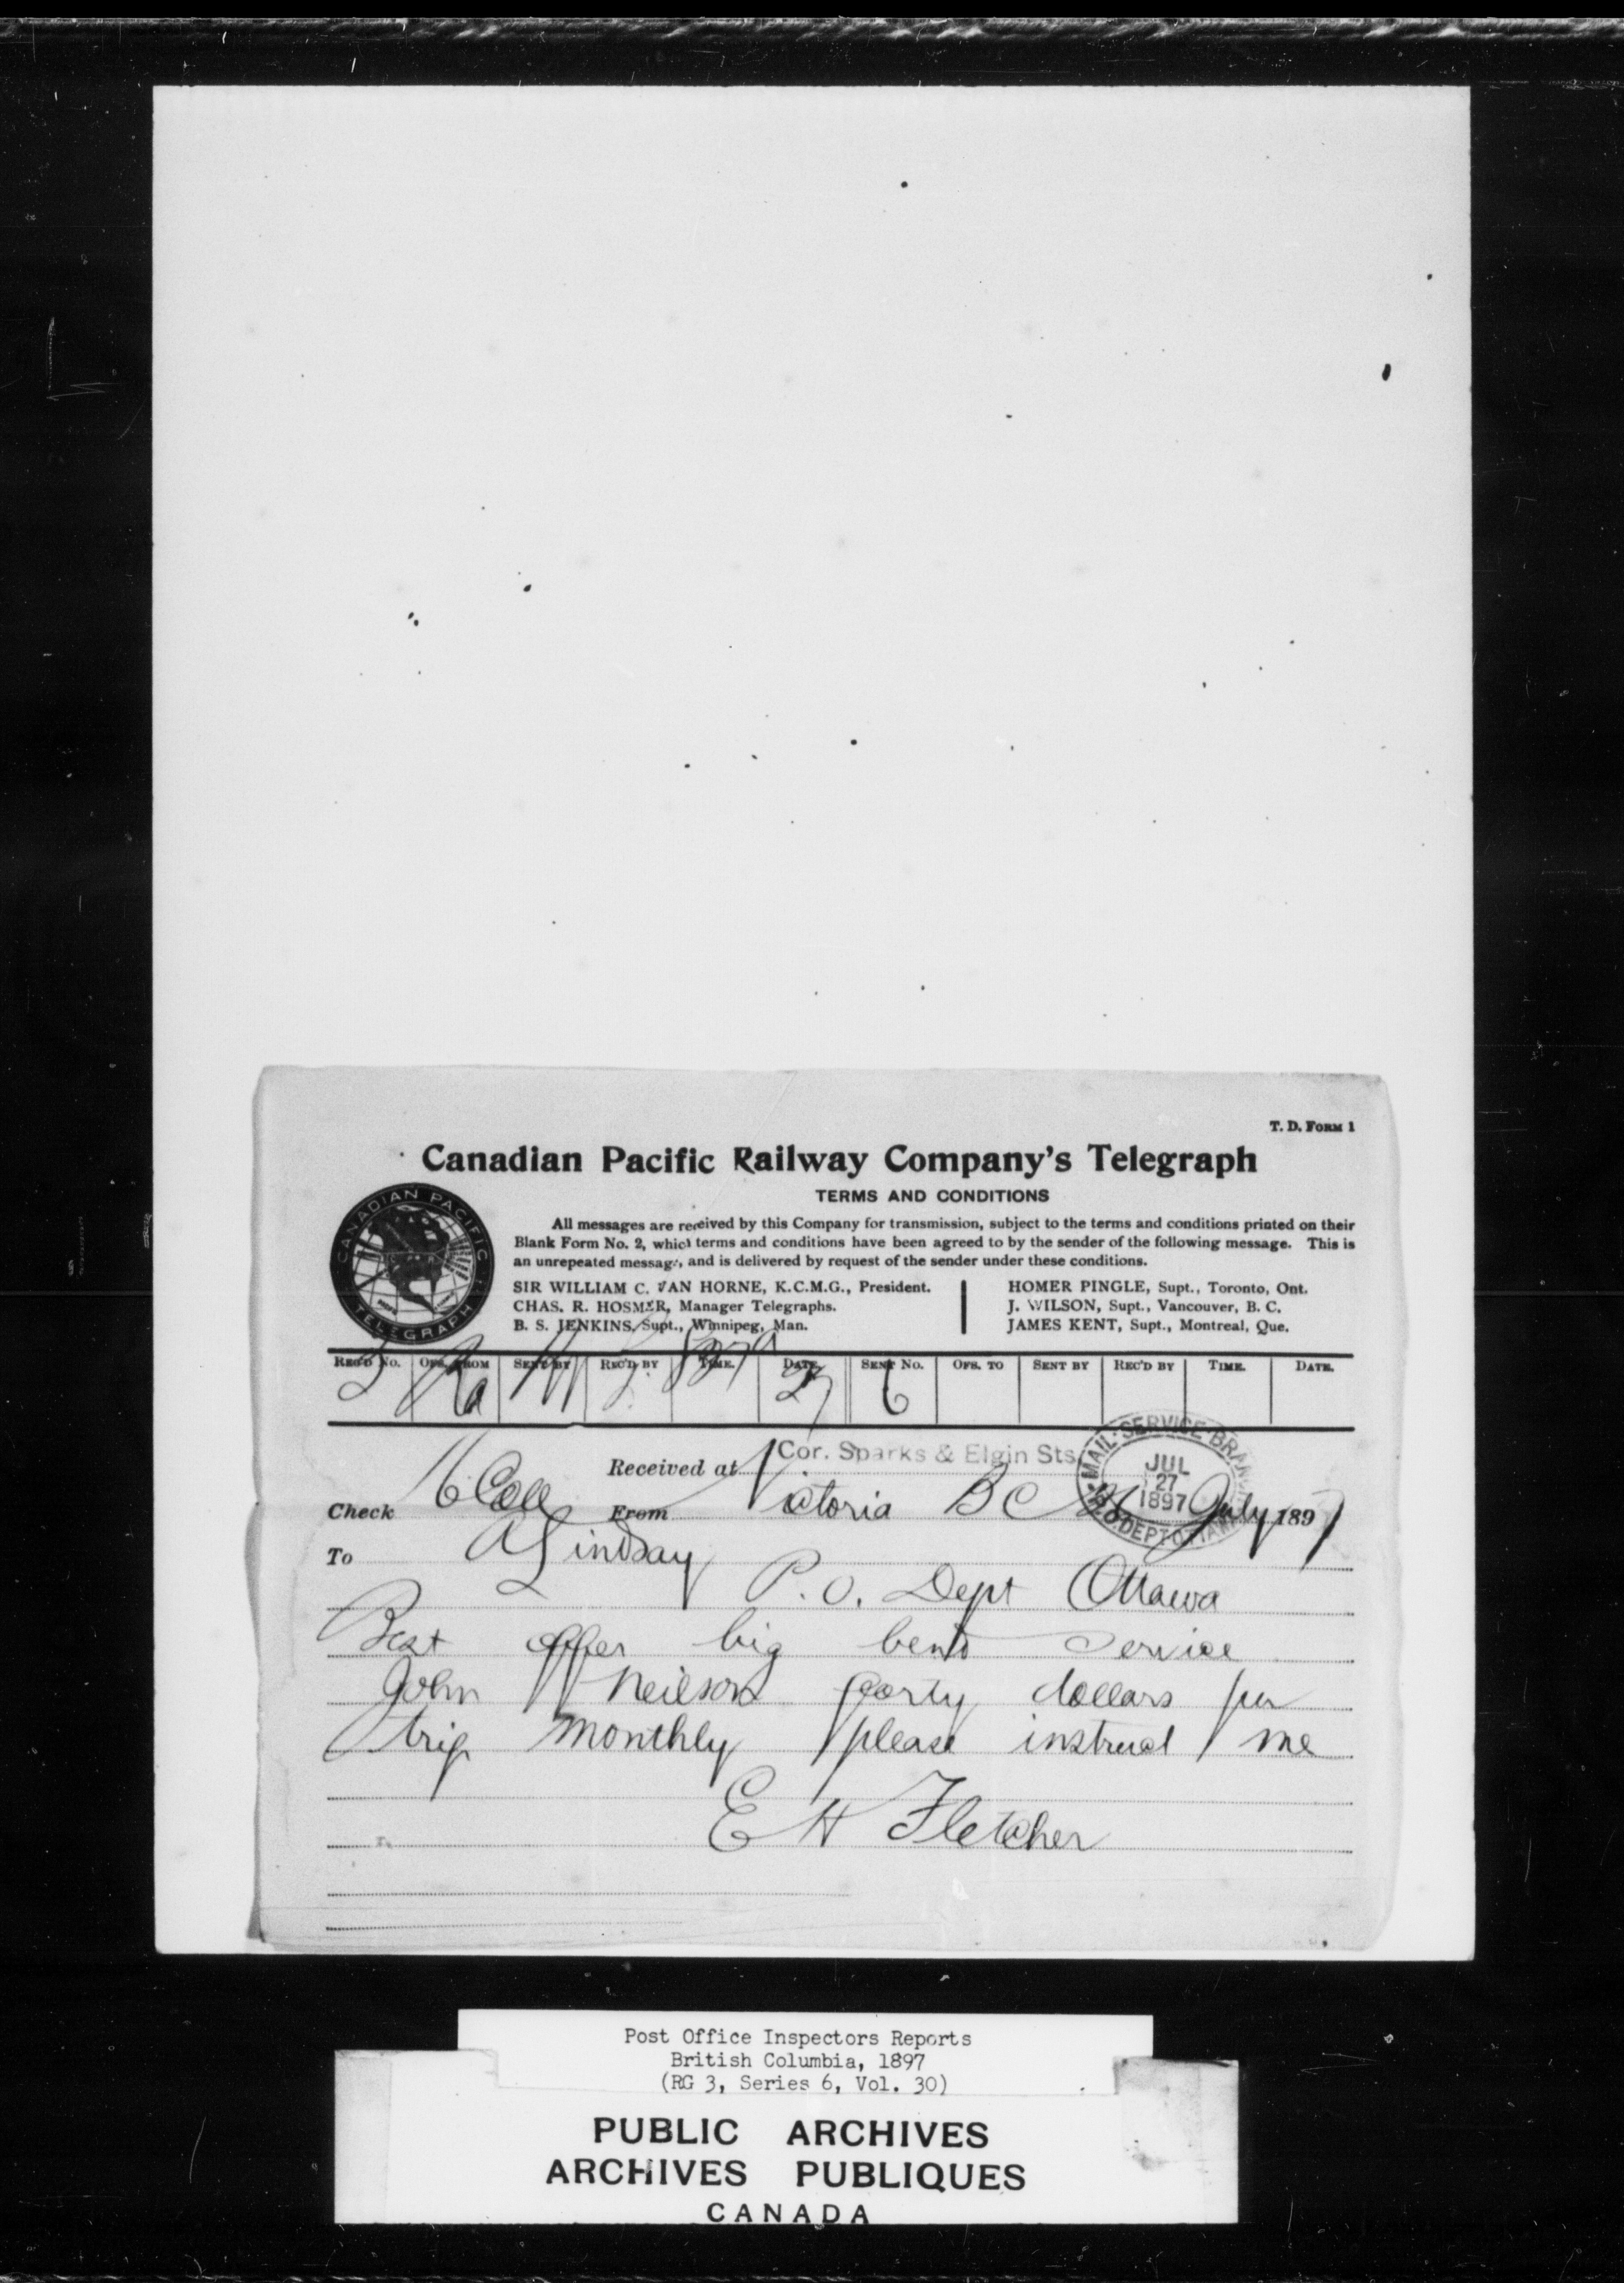 T. D. FORM 1
Canadian Pacific Railway Company's Telegraph
TERMS AND CONDITIONS
CANADIAN PACIFIC
TELEGRAPH
All messages are received by this Company for transmission, subject to the terms and conditions printed on their
Blank Form No. 2, which terms and conditions have been agreed to by the sender of the following message. This is
an unrepeated message, and is delivered by request of the sender under these conditions.
SIR WILLIAM C. VAN HORNE, K.C.M.G., President.
CHAS. R. HOSMER, Manager Telegraphs.
B. S. JENKINS, Supt., Winnipeg, Man.
HOMER PINGLE, Supt., Toronto, Ont.
J. WILSON, Supt., Vancouver, B. C.
JAMES KENT, Supt., Montreal, Que.
REC'D NO. OFS. FROM SENT BY REC'D BY TIME. DATE. SENT NO. OFS. TO SENT BY REC'D BY TIME. DATE.
27 6
Received at Cor. Sparks & Elgin Sts.
MAIL SERVICE BRANCH
JUL
27
1897
P.O. DEPT OTTAWA
Check 16 Coll From Victoria BC 26 July 1897
To A Lindsay
P.O. Dept Ottawa
Best offer big bend service
John Neilson forty dollars per
trip monthly please instruct me
E H Fletcher
Post Office Inspectors Reports
British Columbia, 1897
(RG 3, Series 6, Vol. 30)
PUBLIC ARCHIVES
ARCHIVES PUBLIQUES
CANADA